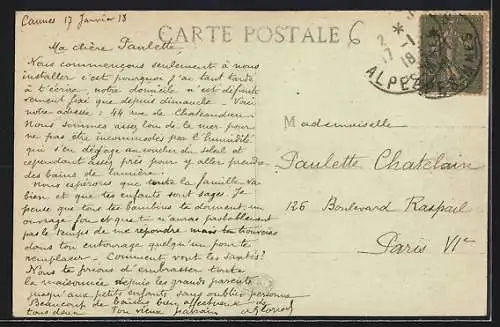 Cannes 17 Janvier 18
CARTE POSTALE
6
Ma chère Paulette,
Nous commençons seulement à nous
installer c'est pourquoi j'ai tant tardé
à t'écrire, notre domicile n'est définiti-
vement fixé que depuis dimanche. Voici
notre adresse : 44 rue de Chateaudun
Nous sommes assez loin de la mer pour
ne pas être incommodés par l'humidité
qui s'en dégage au coucher du soleil et
cependant assez près pour y aller prendre
des bains de lumière.
Nous espérons que toute la famille va
bien et que tes enfants sont sages. Je
pense que tous les bambins te donnent un
ouvrage fou et que tu n'auras probablement
pas le temps de me répondre mais tu trouveras
dans ton entourage quelqu'un pour te
remplacer. Comment vont les santés?
Nous te prions d'embrasser toute
la maisonnée depuis les grands parents
jusqu'aux petits enfants sans oublier personne
Beaucoup de baisers bien affectueux de
tous deux Ton vieux parrain
Mademoiselle
Paulette Chatelain
126 Boulevard Raspail
Paris VIe
ALPES